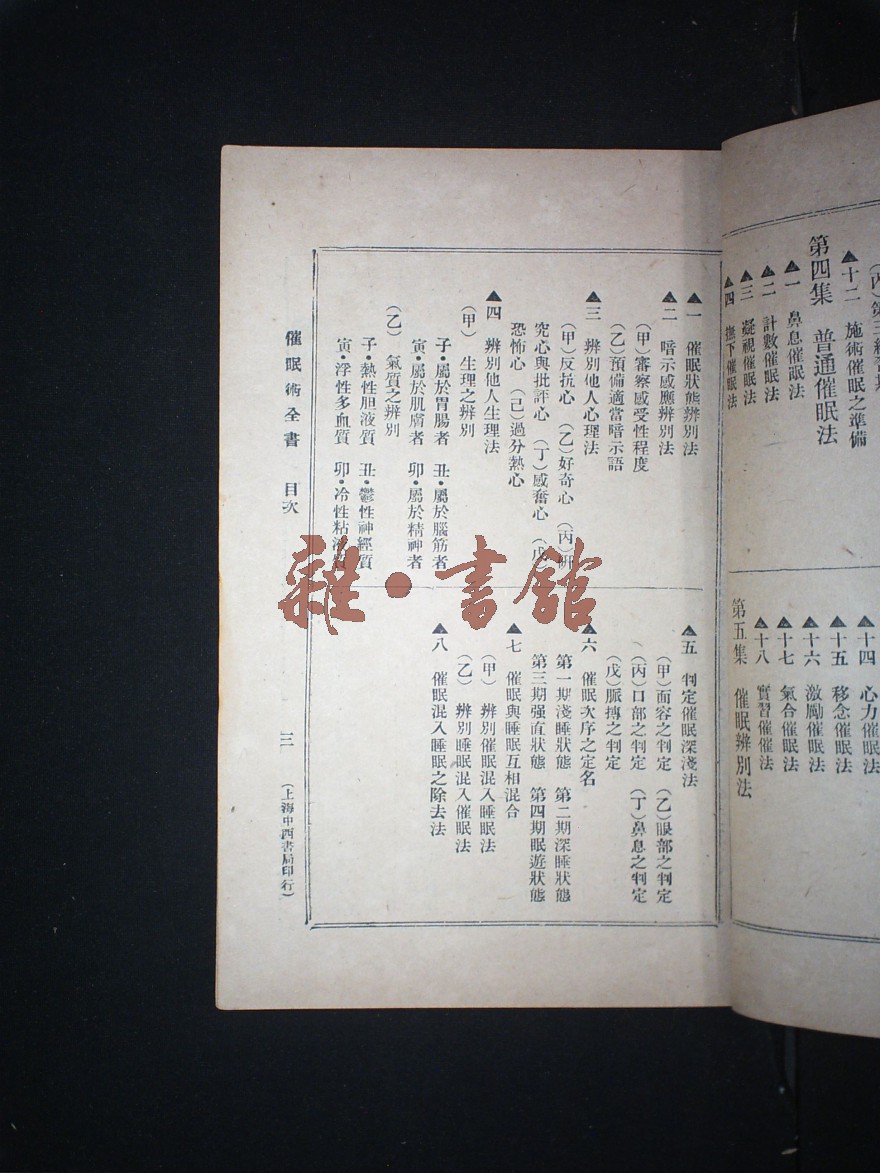 ▲十二　施術催眠之準備
第四集　普通催眠法
▲一　鼻息催眠法
▲二　計數催眠法
▲三　凝視催眠法
▲四　撫下催眠法
▲十四　心力催眠法
▲十五　移念催眠法
▲十六　激勵催眠法
▲十七　氣合催眠法
▲十八　實習催催法
第五集　催眠辨別法
▲一　催眠狀態辨別法
▲二　暗示感應辨別法
（甲）審察感受性程度
（乙）預備適當暗示語
▲三　辨別他人心理法
（甲）反抗心　（乙）好奇心　（丙）研
究心與批評心　（丁）感奮心　（戊）
恐怖心　（己）過分熱心
▲四　辨別他人生理法
（甲）　生理之辨別
子・屬於胃腸者　丑・屬於腦筋者
寅・屬於肌膚者　卯・屬於精神者
（乙）　氣質之辨別
子・熱性胆液質　丑・鬱性神經質
寅・浮性多血質　卯・冷性粘液質
▲五　判定催眠深淺法
（甲）面容之判定　（乙）眼部之判定
（丙）口部之判定　（丁）鼻息之判定
（戊）脈搏之判定
▲六　催眠次序之定名
第一期淺睡狀態　第二期深睡狀態
第三期强直狀態　第四期眠遊狀態
▲七　催眠與睡眠互相混合
（甲）　辨別催眠混入睡眠法
（乙）　辨別睡眠混入催眠法
▲八　催眠混入睡眠之除去法
催眠術全書　目次
三
（上海中西書局印行）
雜・書館